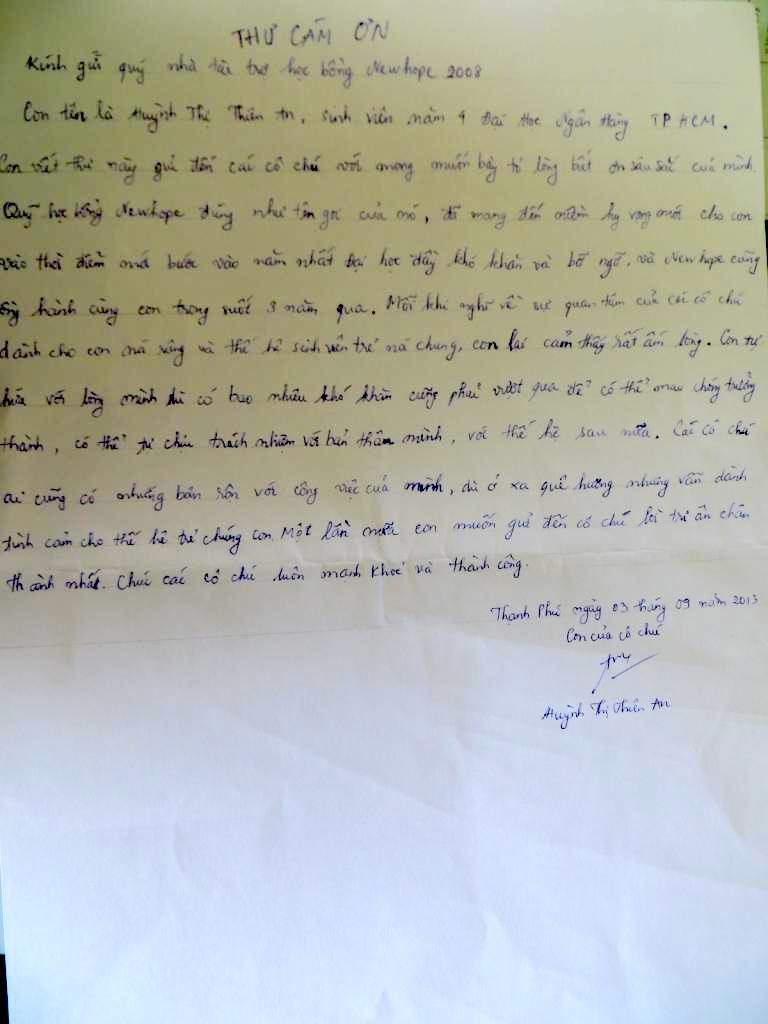 THƯ CÁM ƠN
Kính gửi quý nhà tài trợ học bổng Newhope 2008
Con tên là Huỳnh Thị Thiên An, sinh viên năm 4 Đại Học Ngân Hàng TP HCM.
Con viết thư này gửi đến các cô chú với mong muốn bày tỏ lòng biết ơn sâu sắc của mình.
Quỹ học bổng Newhope đúng như tên gọi của nó, đã mang đến niềm hy vọng mới cho con
vào thời điểm mới bước vào năm nhất Đại học đầy khó khăn và bỡ ngỡ, và Newhope cũng
đồng hành cùng con trong suốt 3 năm qua. Mỗi khi nghĩ về sự quan tâm của các cô chú
dành cho con nói riêng và thế hệ sinh viên trẻ nói chung, con lại cảm thấy rất ấm lòng. Con tự
hứa với lòng mình dù có bao nhiêu khó khăn cũng phải vượt qua để có thể mau chóng trưởng
thành, có thể tự chịu trách nhiệm với bản thân mình, với thế hệ sau nữa. Các cô chú
ai cũng có những bận rộn với công việc của mình, dù ở xa quê hương nhưng vẫn dành
tình cảm cho thế hệ trẻ chúng con. Một lần nữa con muốn gửi đến cô chú lời tri ân chân
thành nhất. Chúc các cô chú luôn mạnh khoẻ và thành công.
Thạnh Phú ngày 03 tháng 09 năm 2013
Con của cô chú
Huỳnh Thị Thiên An